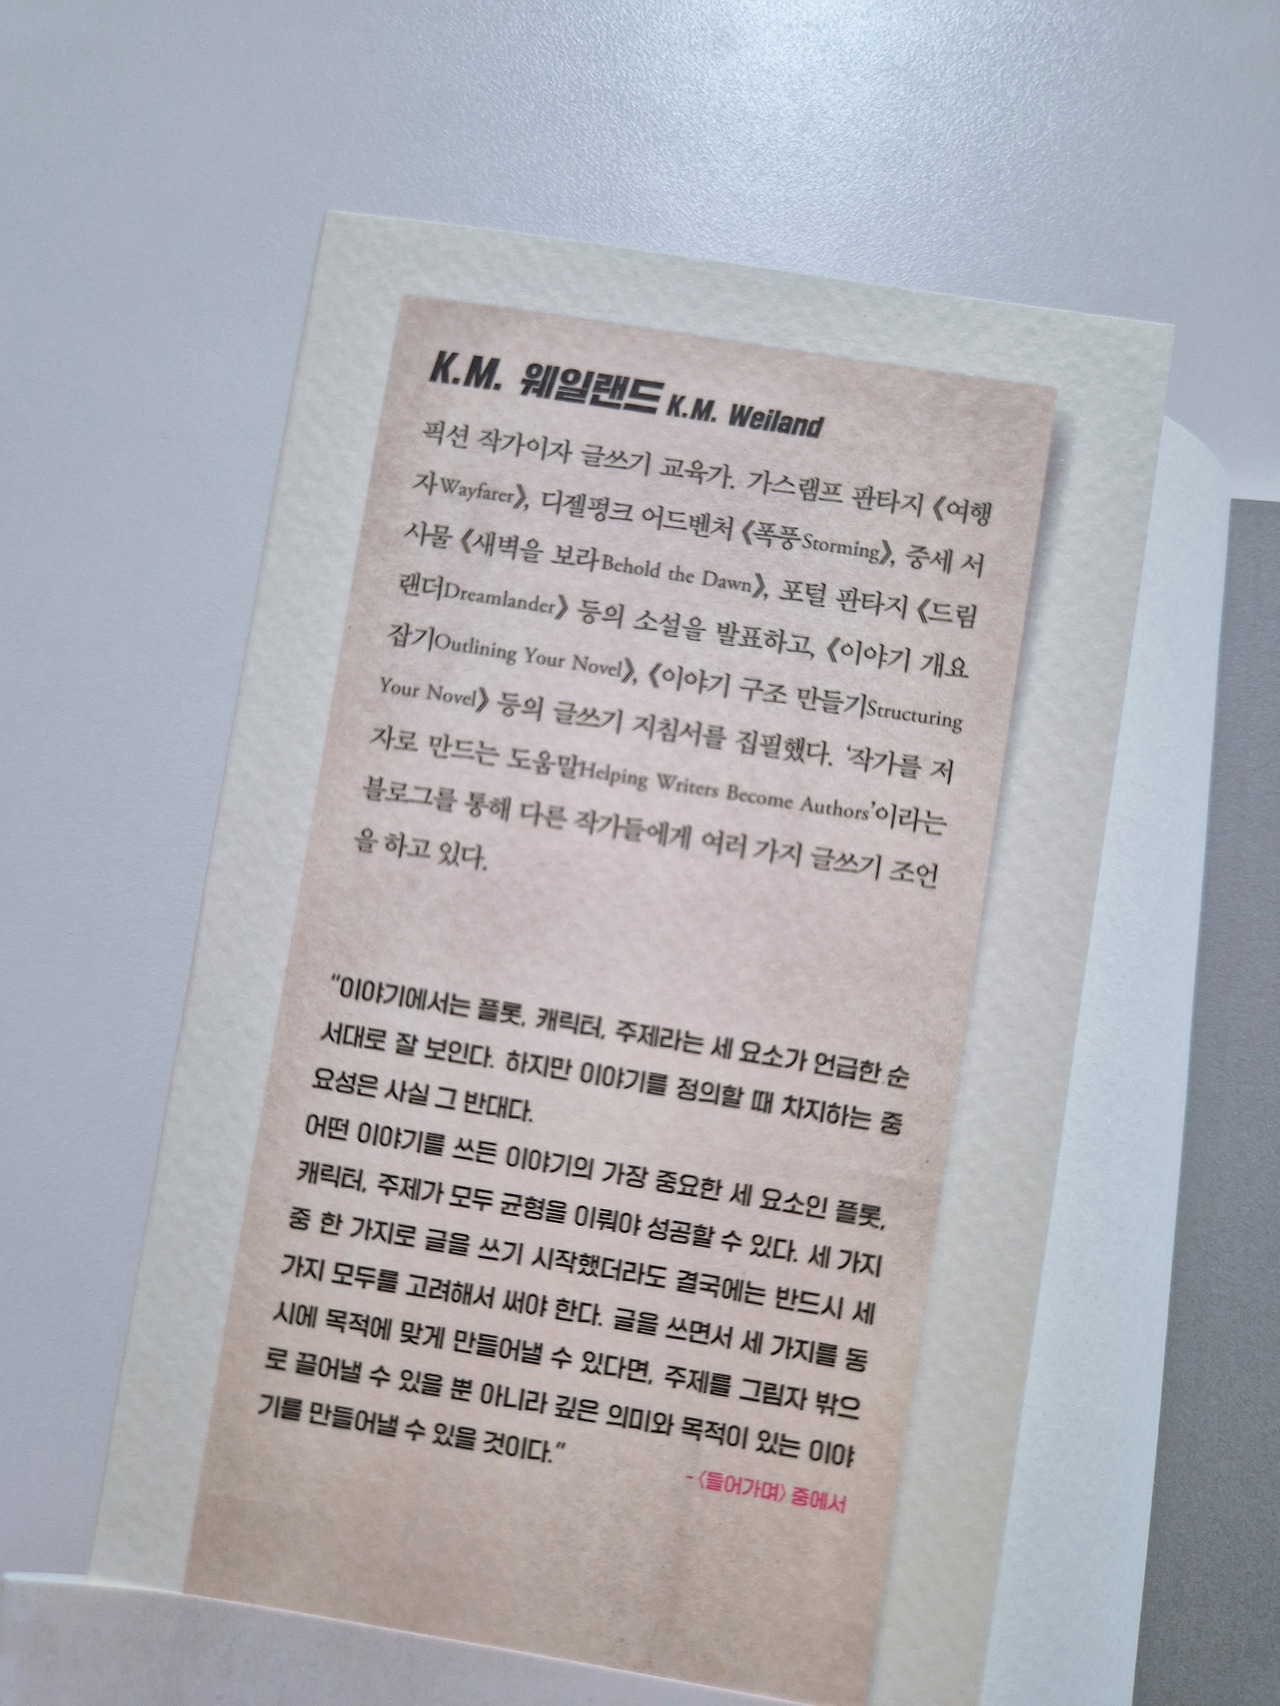 K.M. 웨일랜드 K.M. Weiland
픽션 작가이자 글쓰기 교육가. 가스램프 판타지 《여행
자Wayfarer》, 디젤펑크 어드벤처 《폭풍Storming》, 중세 서
사물 《새벽을 보라Behold the Dawn》, 포털 판타지 《드림
랜더Dreamlander》 등의 소설을 발표하고, 《이야기 개요
잡기Outlining Your Novel》, 《이야기 구조 만들기Structuring
Your Novel》 등의 글쓰기 지침서를 집필했다. ‘작가를 저
자로 만드는 도움말Helping Writers Become Authors’이라는
블로그를 통해 다른 작가들에게 여러 가지 글쓰기 조언
을 하고 있다.
“이야기에서는 플롯, 캐릭터, 주제라는 세 요소가 언급한 순
서대로 잘 보인다. 하지만 이야기를 정의할 때 차지하는 중
요성은 사실 그 반대다.
어떤 이야기를 쓰든 이야기의 가장 중요한 세 요소인 플롯,
캐릭터, 주제가 모두 균형을 이뤄야 성공할 수 있다. 세 가지
중 한 가지로 글을 쓰기 시작했더라도 결국에는 반드시 세
가지 모두를 고려해서 써야 한다. 글을 쓰면서 세 가지를 동
시에 목적에 맞게 만들어낼 수 있다면, 주제를 그림자 밖으
로 끌어낼 수 있을 뿐 아니라 깊은 의미와 목적이 있는 이야
기를 만들어낼 수 있을 것이다.”
-〈들어가며〉 중에서